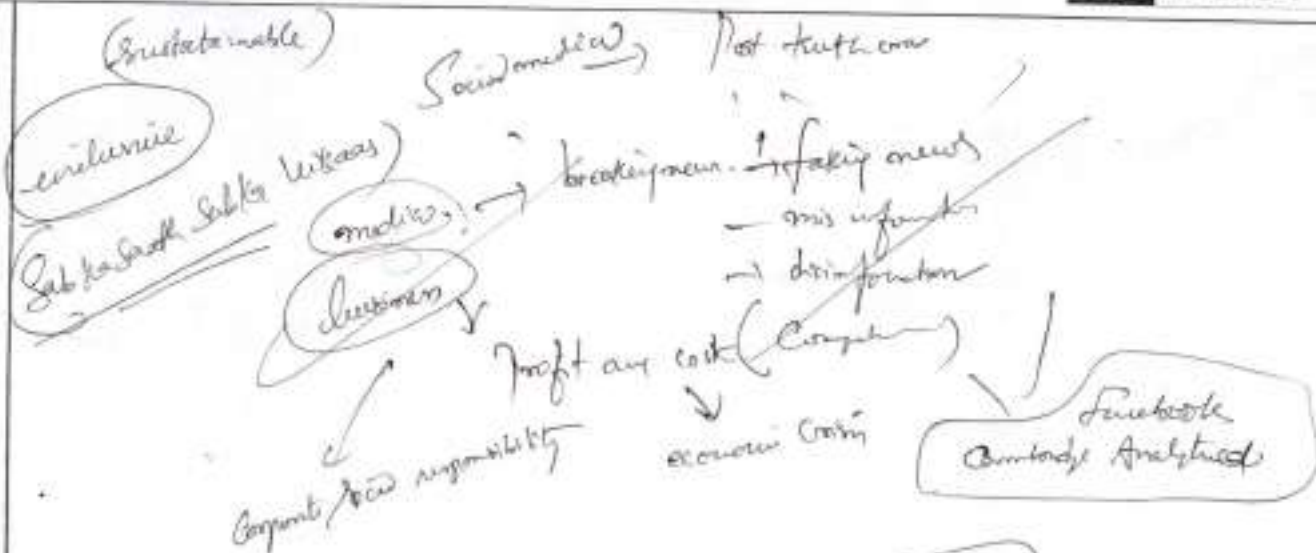 (Sustainable)
Social media) Post truth era
inclusive
Sabka Saath Sabka Vikaas)
media → breaking news → faking news
— mis information
→ disinformation
business
Profit any cost (
economic crisis
Corporate social responsibility
Facebook
Cambridge Analytica